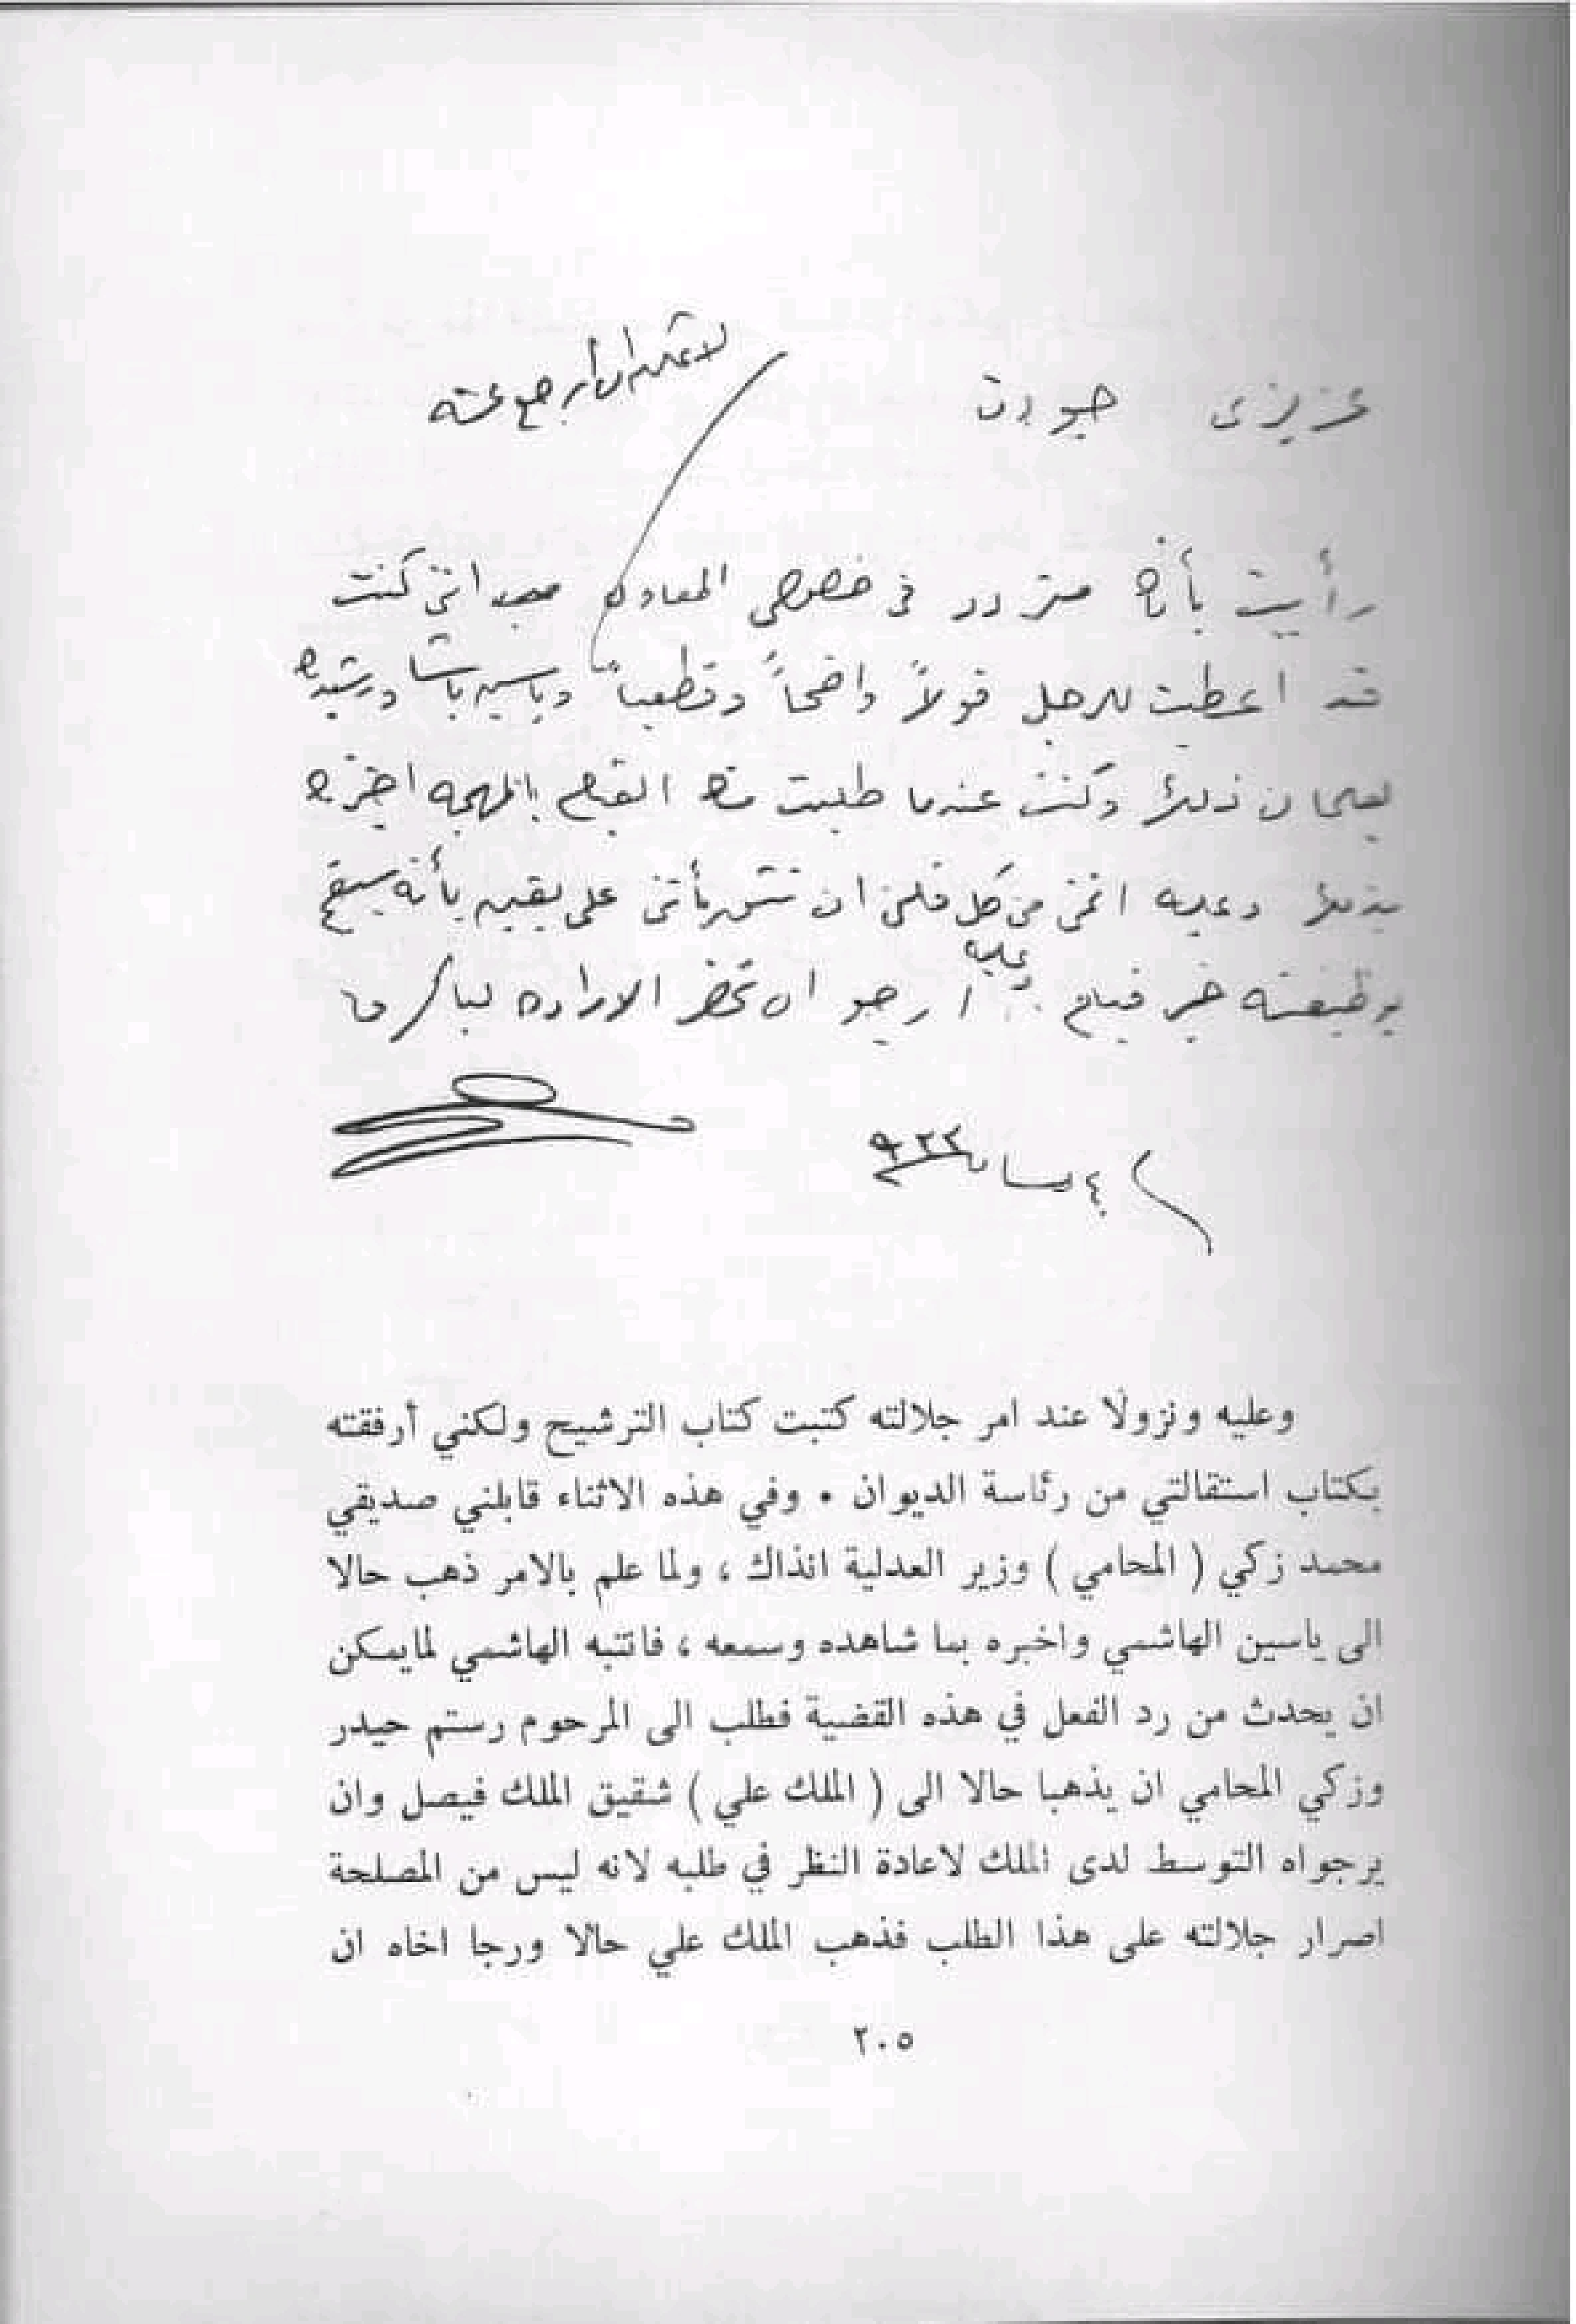 عزيزي جودت
لا يمكن ان ارجع عنه
رأيت بأنك متردد في خصوص المعاون مع انني كنت
قد اعطيت للرجل قولاً واضحاً وقطعياً وياسين باشا ورشيد
يعلمان ذلك وكنت عندما طلبت منك القيام بالمهمة اخبرتك
بذلك وعليه اتمنى من كل قلبي ان تثق بأنني على يقين بأنه سيقوم
بوظيفته خير قيام وعليه ارجو ان تحضر الارادة
٤ نيسان ٩٣٣
وعليه ونزولا عند امر جلالته كتبت كتاب الترشيح ولكني أرفقته
بكتاب استقالتي من رئاسة الديوان ٠ وفي هذه الاثناء قابلني صديقي
محمد زكي ( المحامي ) وزير العدلية انذاك ، ولما علم بالامر ذهب حالا
الى ياسين الهاشمي واخبره بما شاهده وسمعه ، فانتبه الهاشمي لمايمكن
ان يحدث من رد الفعل في هذه القضية فطلب الى المرحوم رستم حيدر
وزكي المحامي ان يذهبا حالا الى ( الملك علي ) شقيق الملك فيصل وان
يرجواه التوسط لدى الملك لاعادة النظر في طلبه لانه ليس من المصلحة
اصرار جلالته على هذا الطلب فذهب الملك علي حالا ورجا اخاه ان
٢٠٥